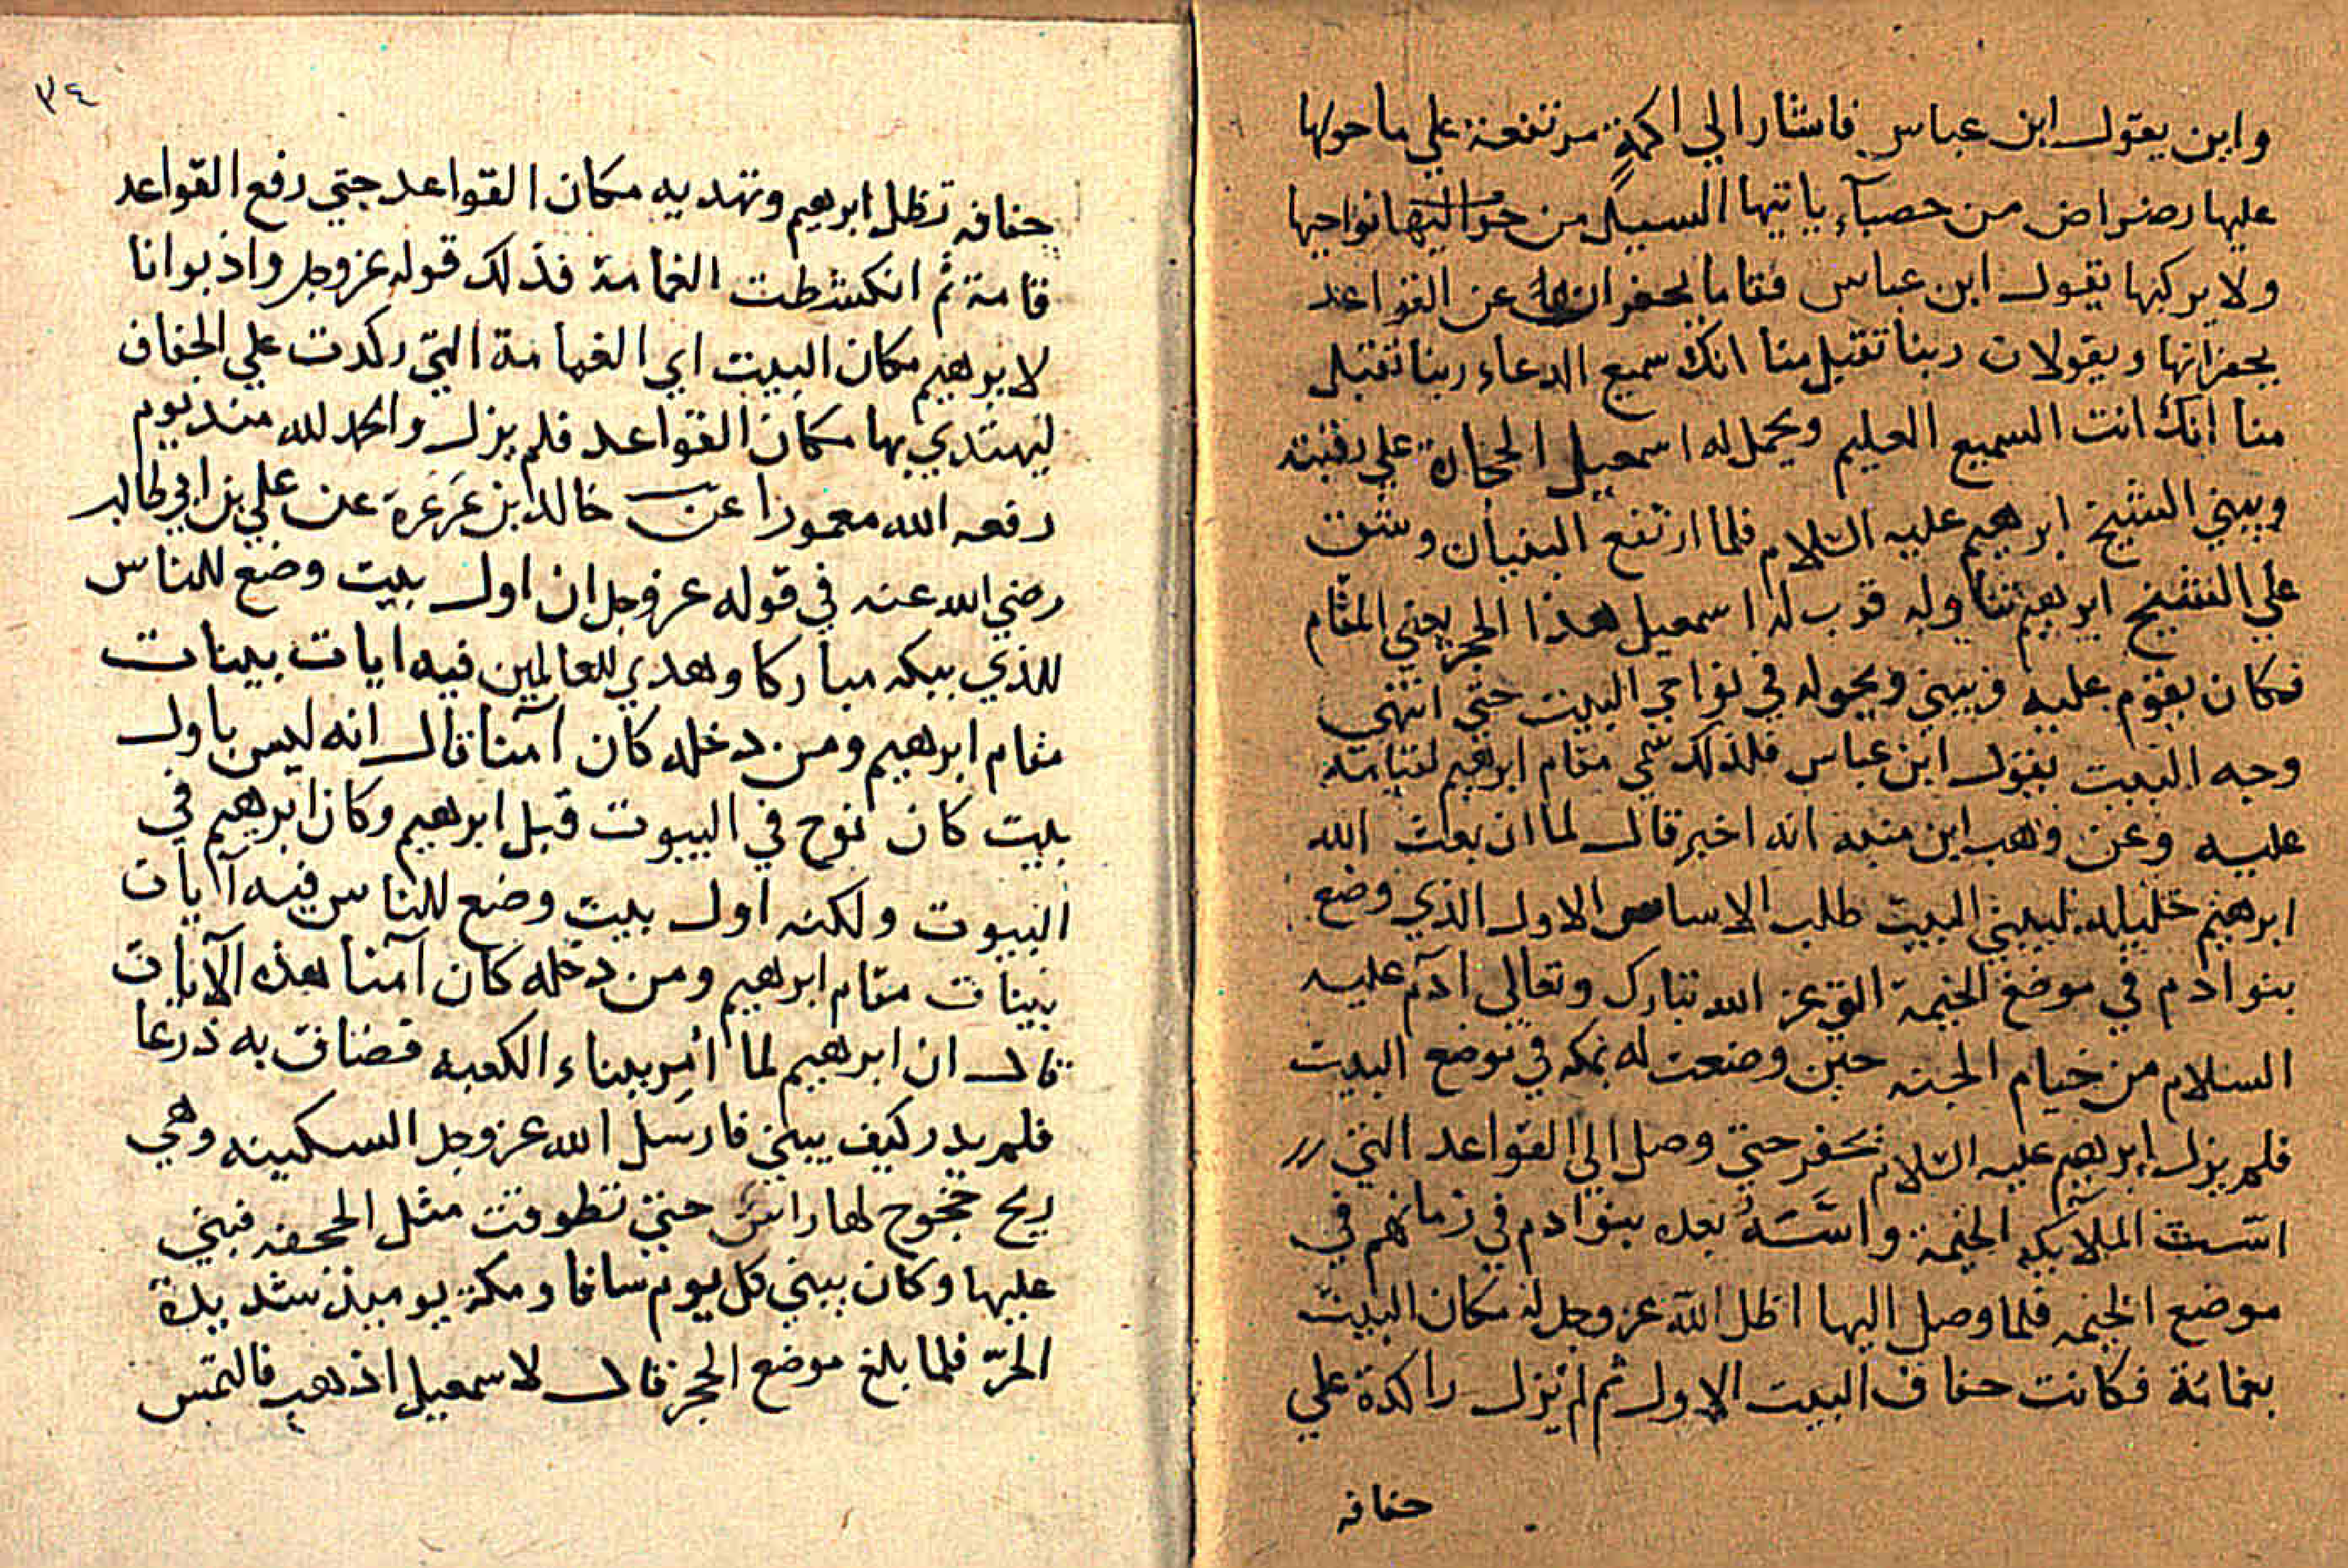 واين يقول ابن عباس فاشار الي اكمة مرتفعة علي ما حولها
عليها رضراض من حصبآء ياتيها السيل من نواحيها
ولا يركبها يقول ابن عباس فقاما يحفران عن القواعد
يحفرانها ويقولان ربنا تقبل منا انك سميع الدعاء ربنا تقبل
منا انك انت السميع العليم ويحمل له اسمعيل الحجارة علي رقبته
ويبني الشيخ ابرهيم عليه السلام فلما ارتفع البنيان وشق
علي الشيخ ابرهيم تناوله قرب له اسمعيل هذا الحجر يعني المقام
فكان يقوم عليه ويبني ويحوله في نواحي البيت حتي انتهي
وجه البيت يقول ابن عباس فلذلك سمي مقام ابرهيم لقيامه
عليه وعن وهب ابن منبه انه اخبر قال لما ان بعث الله
ابرهيم خليله ليبني البيت طلب الاساس الاول الذي وضع
بنو ادم في موضع الخيمة التي عز الله تبارك وتعالي آدم عليه
السلام من خيام الجنه حين وضعت له بمكه في موضع البيت
فلم يزل ابرهيم عليه السلام يحفر حتي وصل الي القواعد التي
اسست الملايكه الخيمة واسسه بعده بنو ادم في زمانهم في
موضع الخيمه فلما وصل اليها اظل الله عز وجل له مكان البيت
بغمامة فكانت حفاف البيت الاول ثم لم تزل راكدة علي
حفافه
٣٤
حفافه تظل ابرهيم وتهديه مكان القواعد حتي رفع القواعد
قامة ثم انكشطت الغمامة فذلك قوله عز وجل واذ بوانا
لابرهيم مكان البيت اي الغمامة التي ركدت علي الحفاف
ليهتدي بها مكان القواعد فلم يزل والحمد لله منذ يوم
رفعه الله معمورا عن خالد بن عرعرة عن علي بن ابي طالب
رضي الله عنه في قوله عز وجل ان اول بيت وضع للناس
للذي ببكه مباركا وهدي للعالمين فيه ايات بينات
مقام ابرهيم ومن دخله كان آمنا قال انه ليس باول
بيت كان نوح في البيوت قبل ابرهيم وكان ابرهيم في
البيوت ولكنه اول بيت وضع للناس فيه آيات
بينات مقام ابرهيم ومن دخله كان آمنا هذه الآيات
قال ان ابرهيم لما امر ببناء الكعبه فضاق به ذرعا
فلم يدر كيف يبني فارسل الله عز وجل السكينه وهي
ريح خجوج لها راس حتي تطوقت مثل الحجفه فبني
عليها وكان يبني كل يوم سافا ومكة يوميذ شديدة
الحر فلما بلغ موضع الحجر قال لاسمعيل اذهب فالتمس